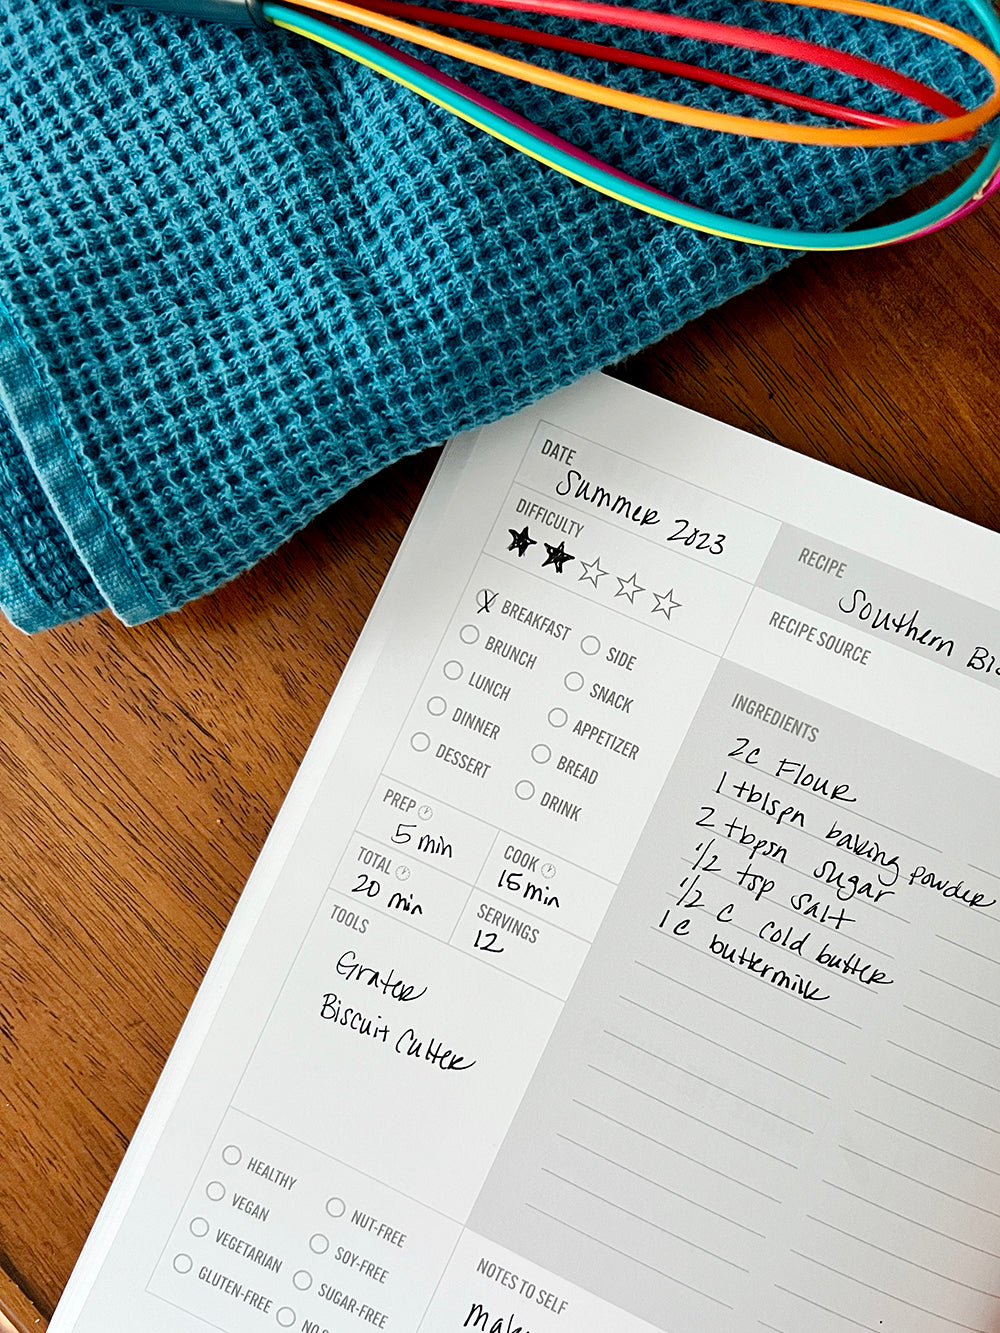 DATE
Summer 2023
DIFFICULTY
BREAKFAST
BRUNCH
LUNCH
DINNER
DESSERT
SIDE
SNACK
APPETIZER
BREAD
DRINK
PREP
5 min
COOK
15 min
TOTAL
20 min
SERVINGS
12
TOOLS
Grater
Biscuit Cutter
HEALTHY
VEGAN
VEGETARIAN
GLUTEN-FREE
NUT-FREE
SOY-FREE
SUGAR-FREE
RECIPE
Southern
RECIPE SOURCE
INGREDIENTS
2c Flour
1 tblspn baking powder
2 tbpsn sugar
1/2 tsp salt
1/2 c cold butter
1 c buttermilk
NOTES TO SELF